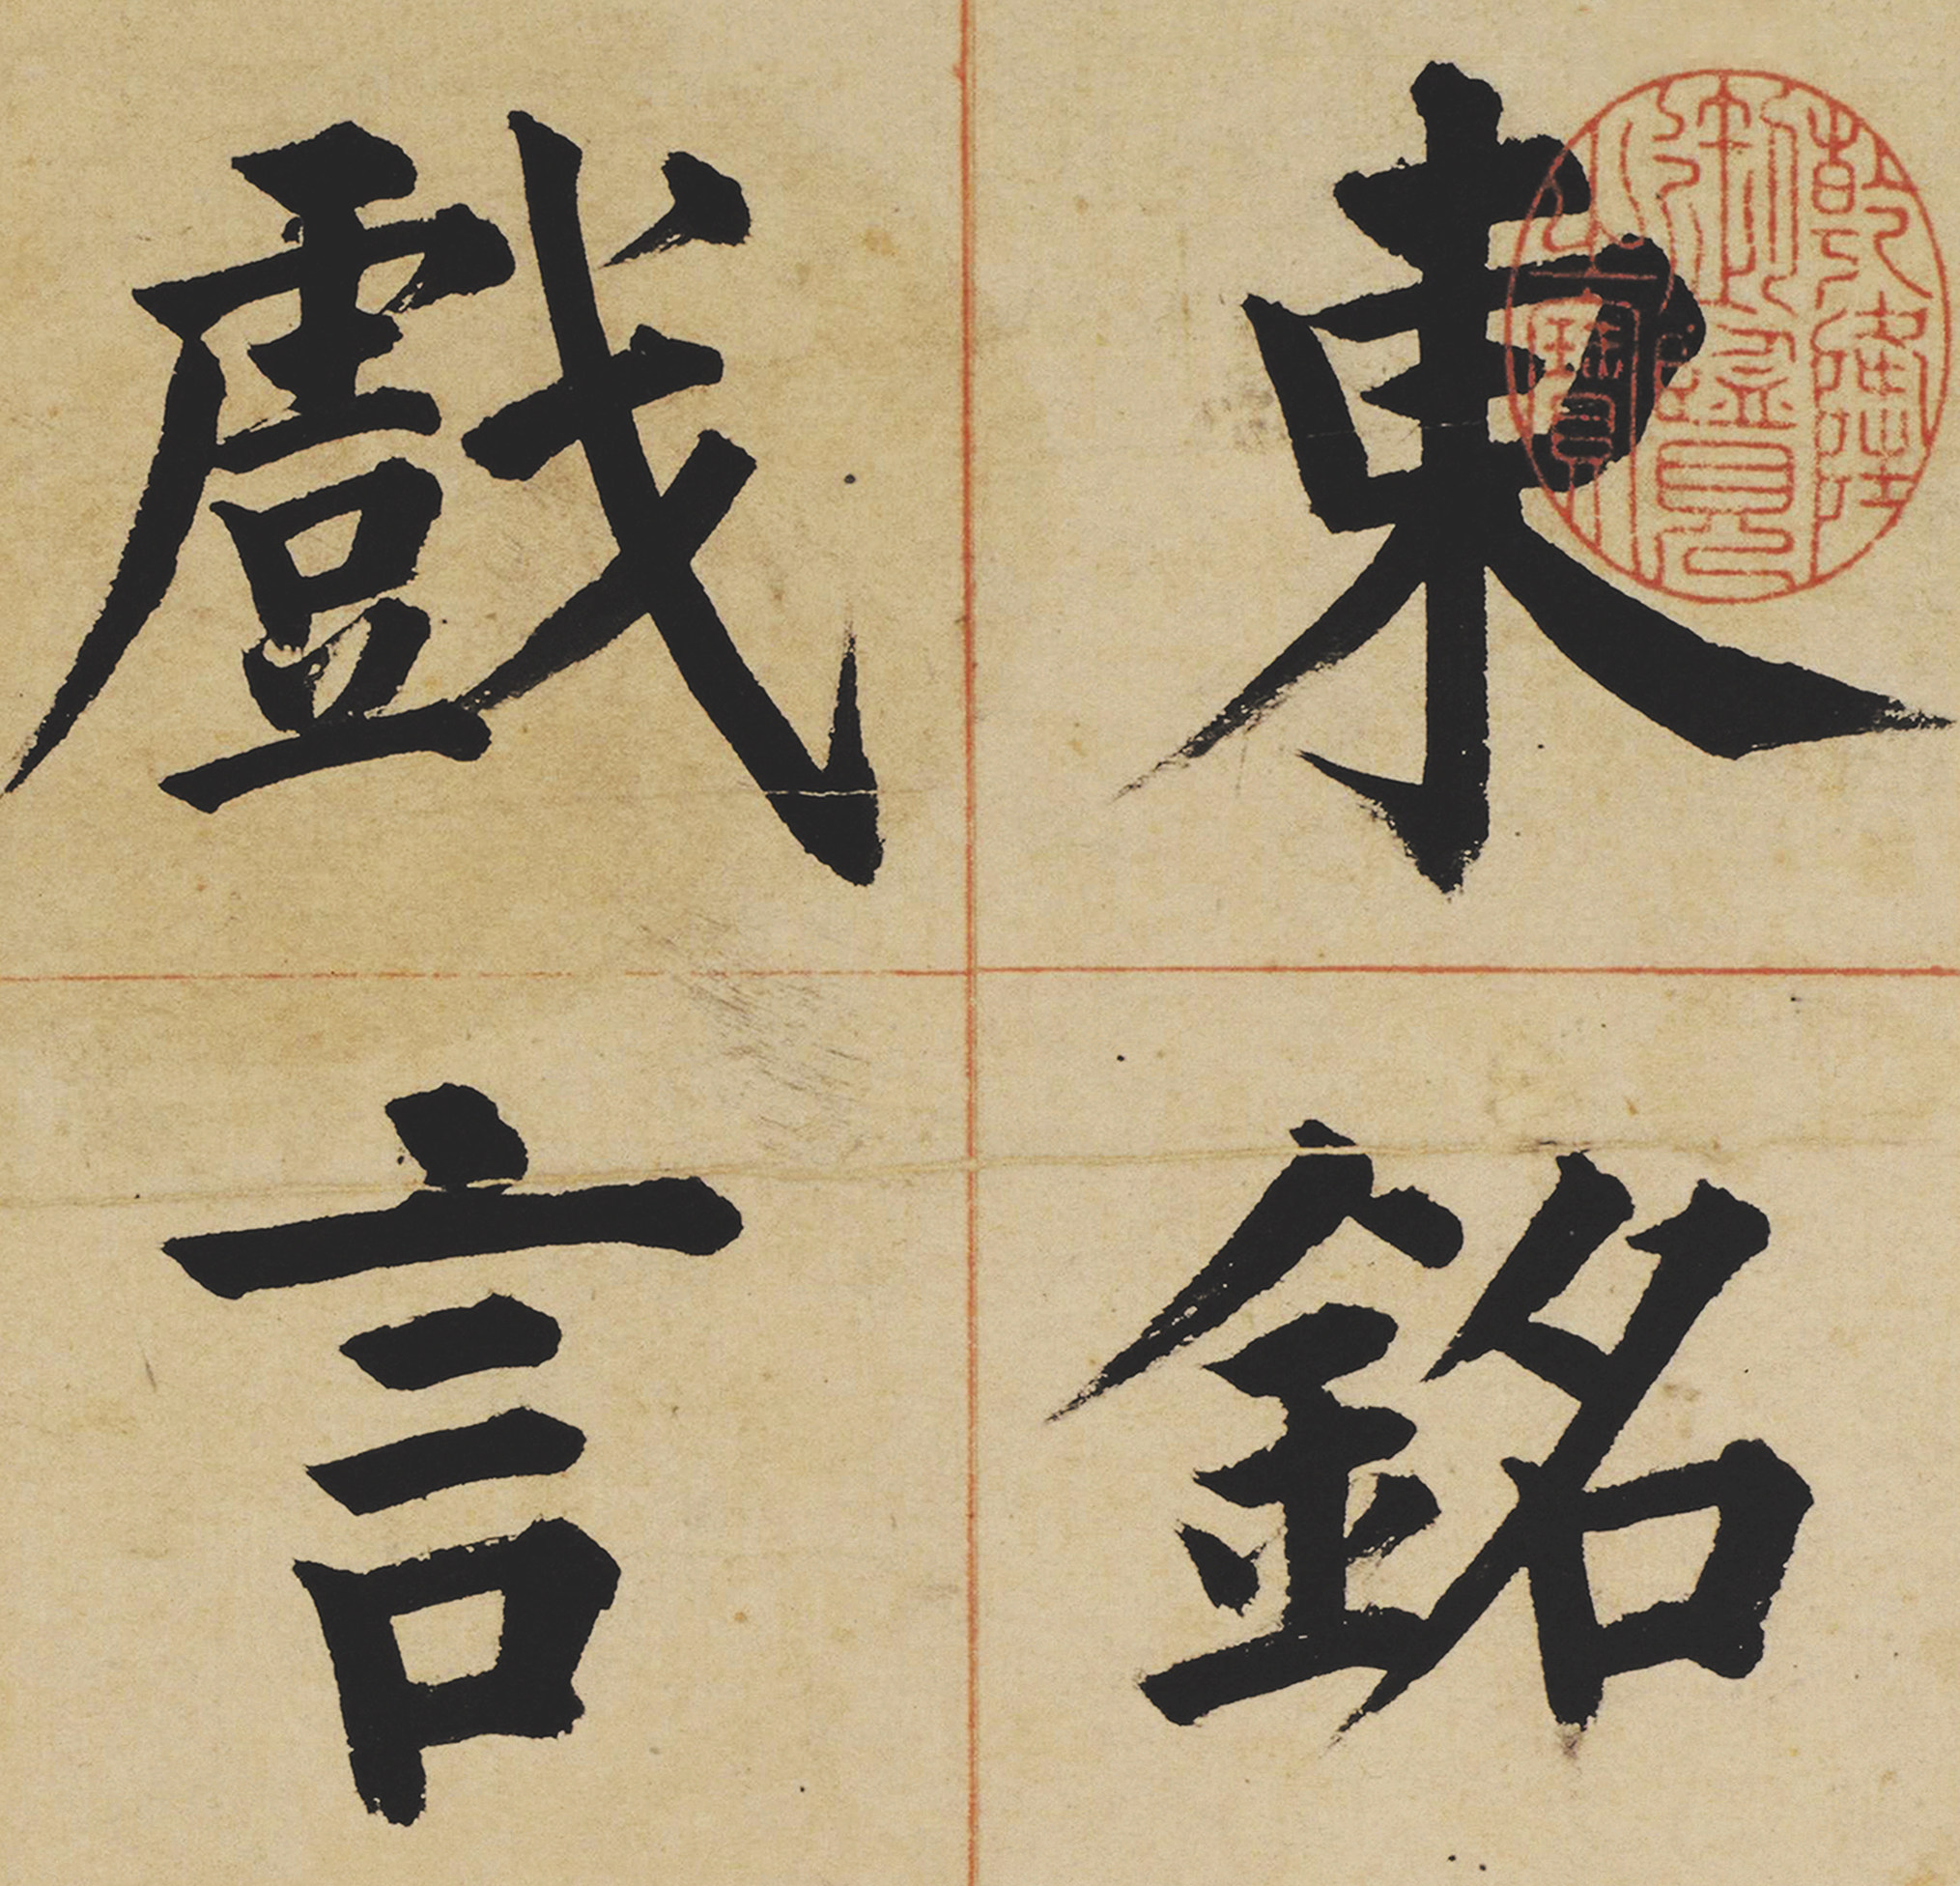 東銘
戲言
乾隆御覽之寶